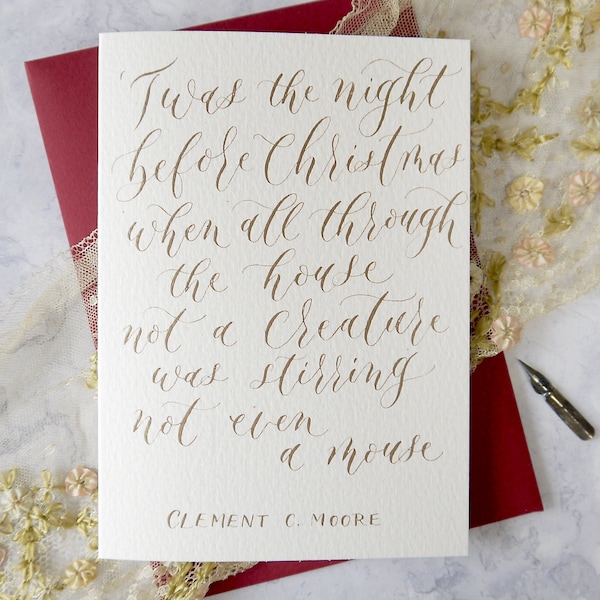 'Twas the night
before Christmas
when all through
the house
not a creature
was stirring
not even
a mouse
CLEMENT C. MOORE